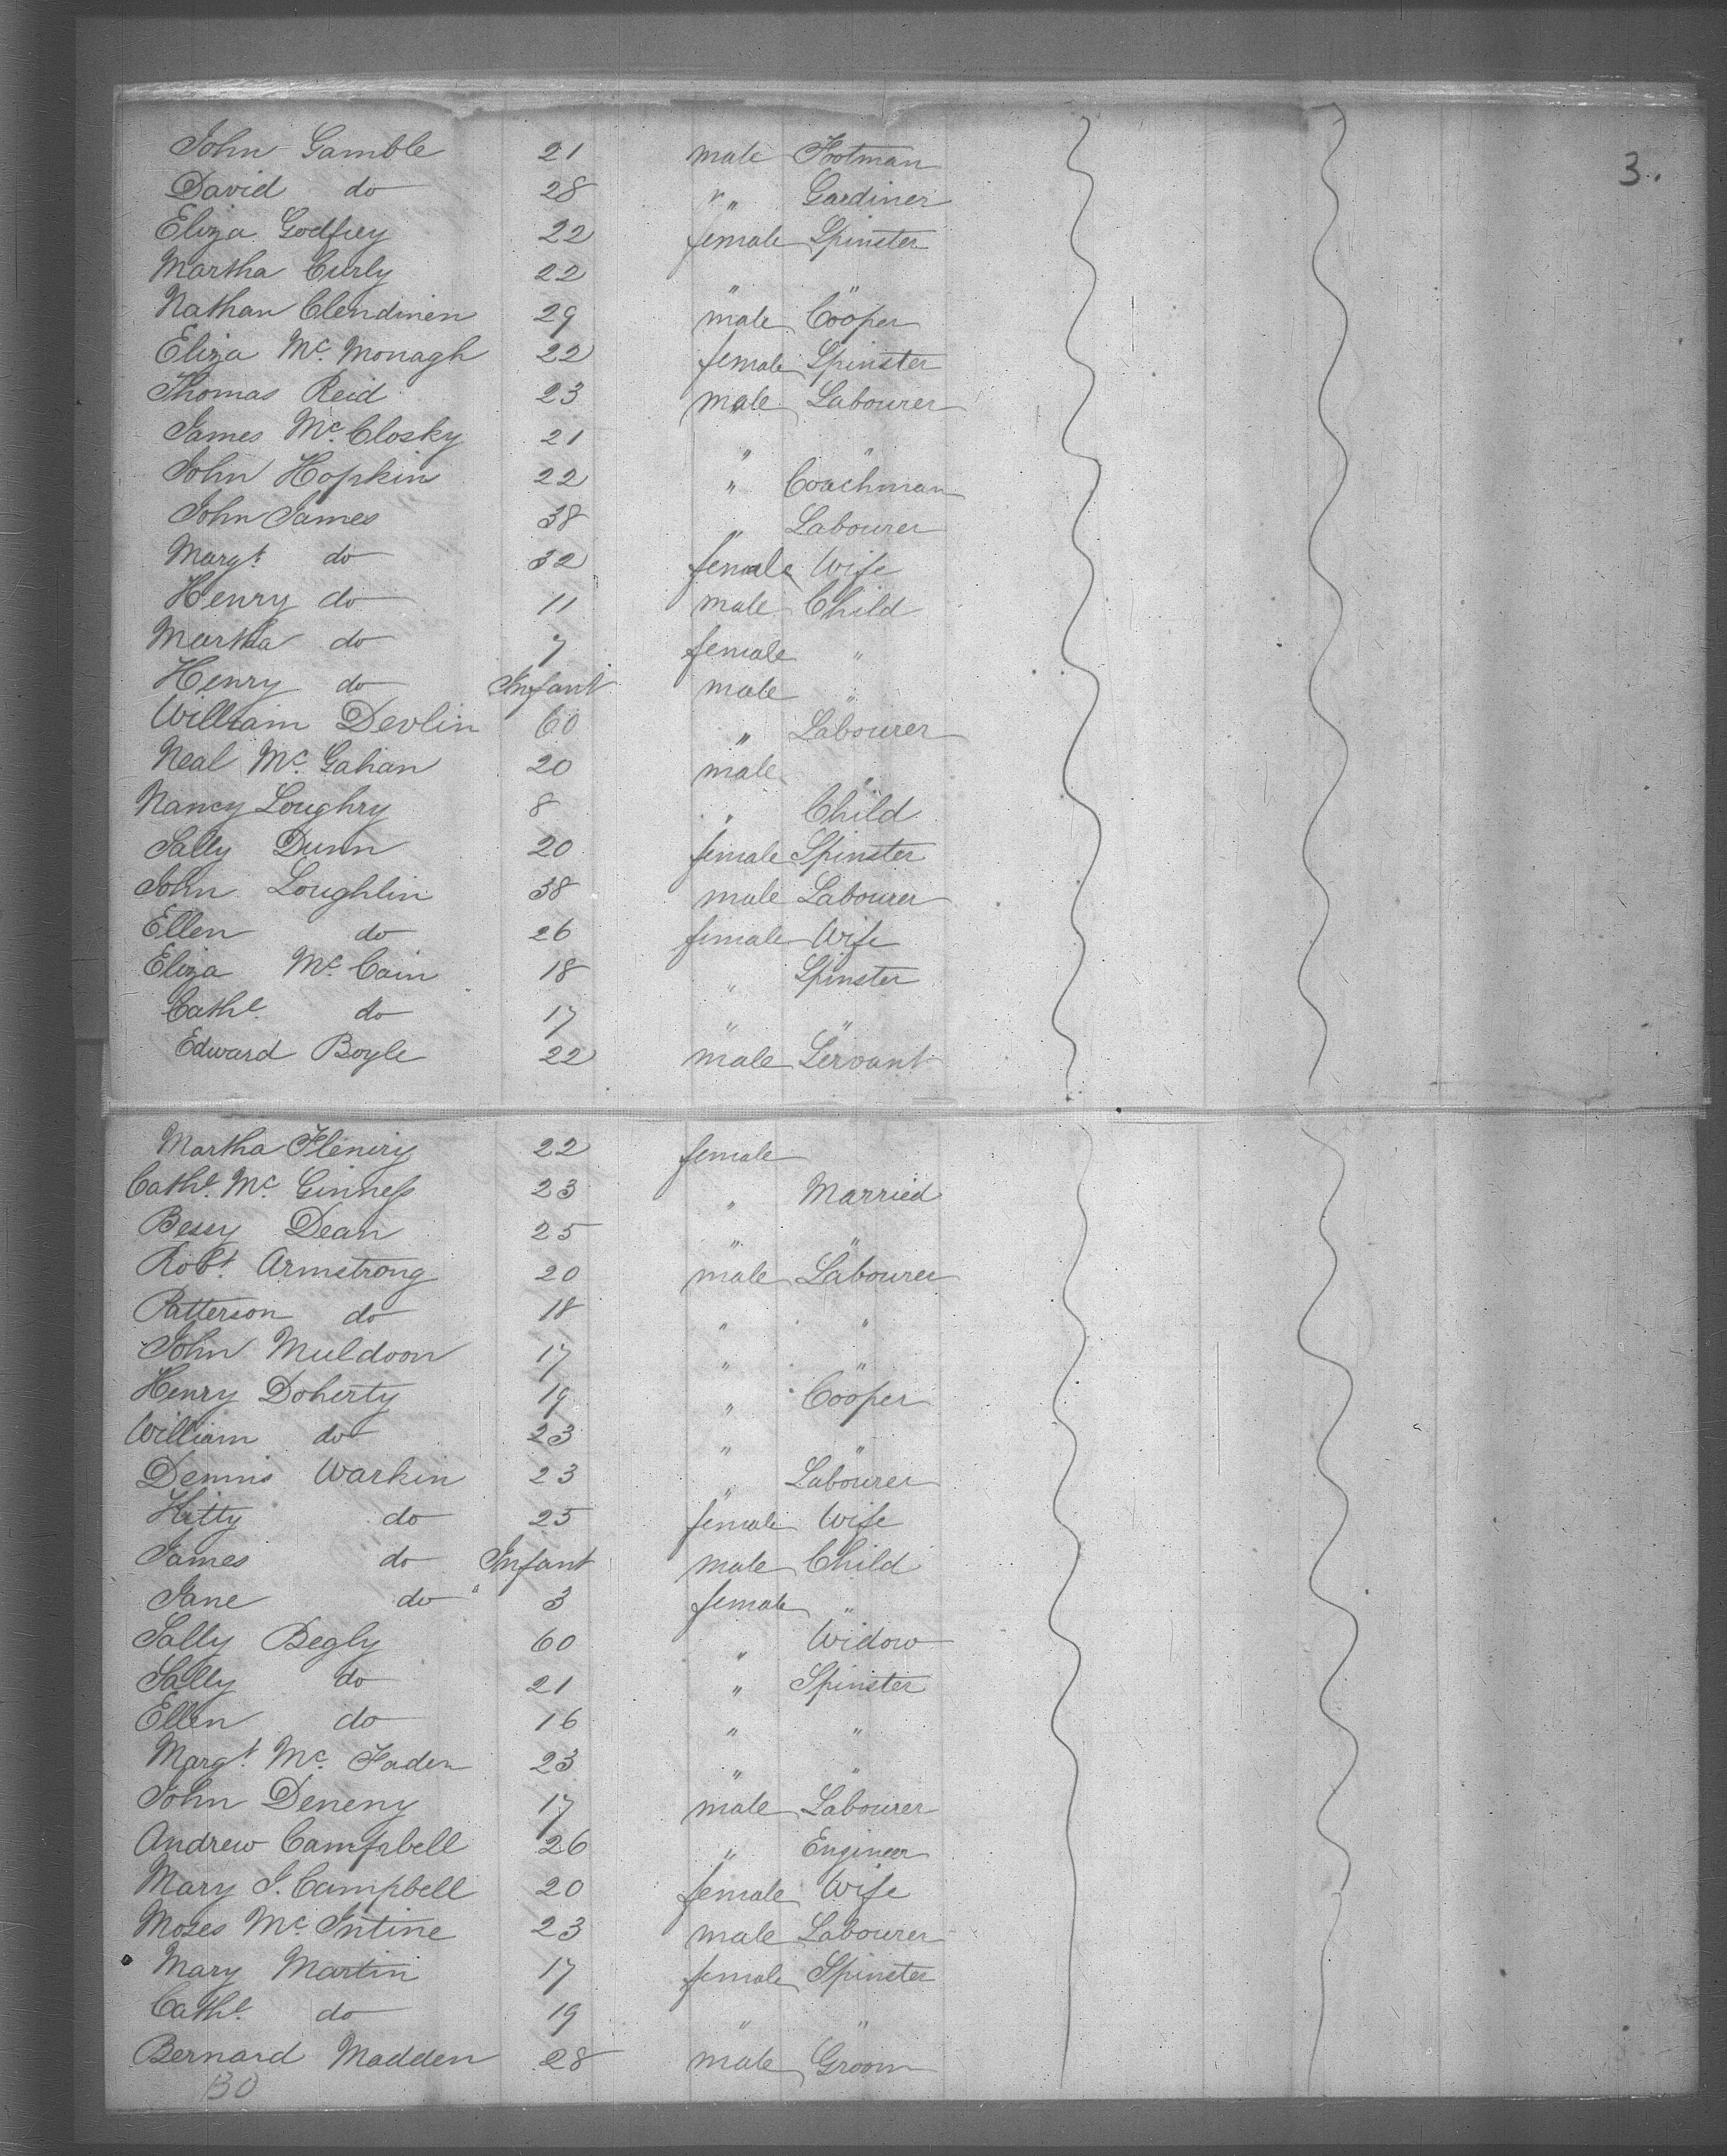 3.
John Gamble 21 male Footman
David do 28 " " Gardiner
Eliza Godfrey 22 female Spinster
Martha Curly 22 " "
Nathan Clendinen 29 male Cooper
Eliza Mc. Monagh 22 female Spinster
Thomas Reid 23 male Labourer
James Mc. Closky 21 " "
John Hopkin 22 " Coachman
John James 38 " Labourer
Margt. do 32 female Wife
Henry do 11 male Child
Martha do 7 female "
Henry do Infant male "
William Devlin 60 " Labourer
Neal Mc. Gahan 20 male "
Nancy Loughry 8 " Child
Sally Dunn 20 female Spinster
John Loughlin 38 male Labourer
Ellen do 26 female Wife
Eliza Mc. Cain 18 " Spinster
Cathe. do 17 " "
Edward Boyle 22 male Servant
Martha Fleniry 22 female
Cathe. Mc. Ginness 23 " Married
Besey Dean 25 " "
Robt. Armstrong 20 male Labourer
Patterson do 18 " "
John Muldoon 17 " "
Henry Doherty 19 " Cooper
William do 23 " "
Dennis Warkin 23 " Labourer
Kitty do 25 female Wife
James do Infant male Child
Jane do " 3 female "
Sally Begly 60 " Widow
Sally do 21 " Spinster
Ellen do 16 " "
Margt. Mc. Faden 23 " "
John Deneny 17 male Labourer
Andrew Campbell 26 " Engineer
Mary J. Campbell 20 female Wife
Moses Mc. Intine 23 male Labourer
Mary Martin 17 female Spinster
Cathe. do 19 " "
Bernard Madden 28 male Groom
130